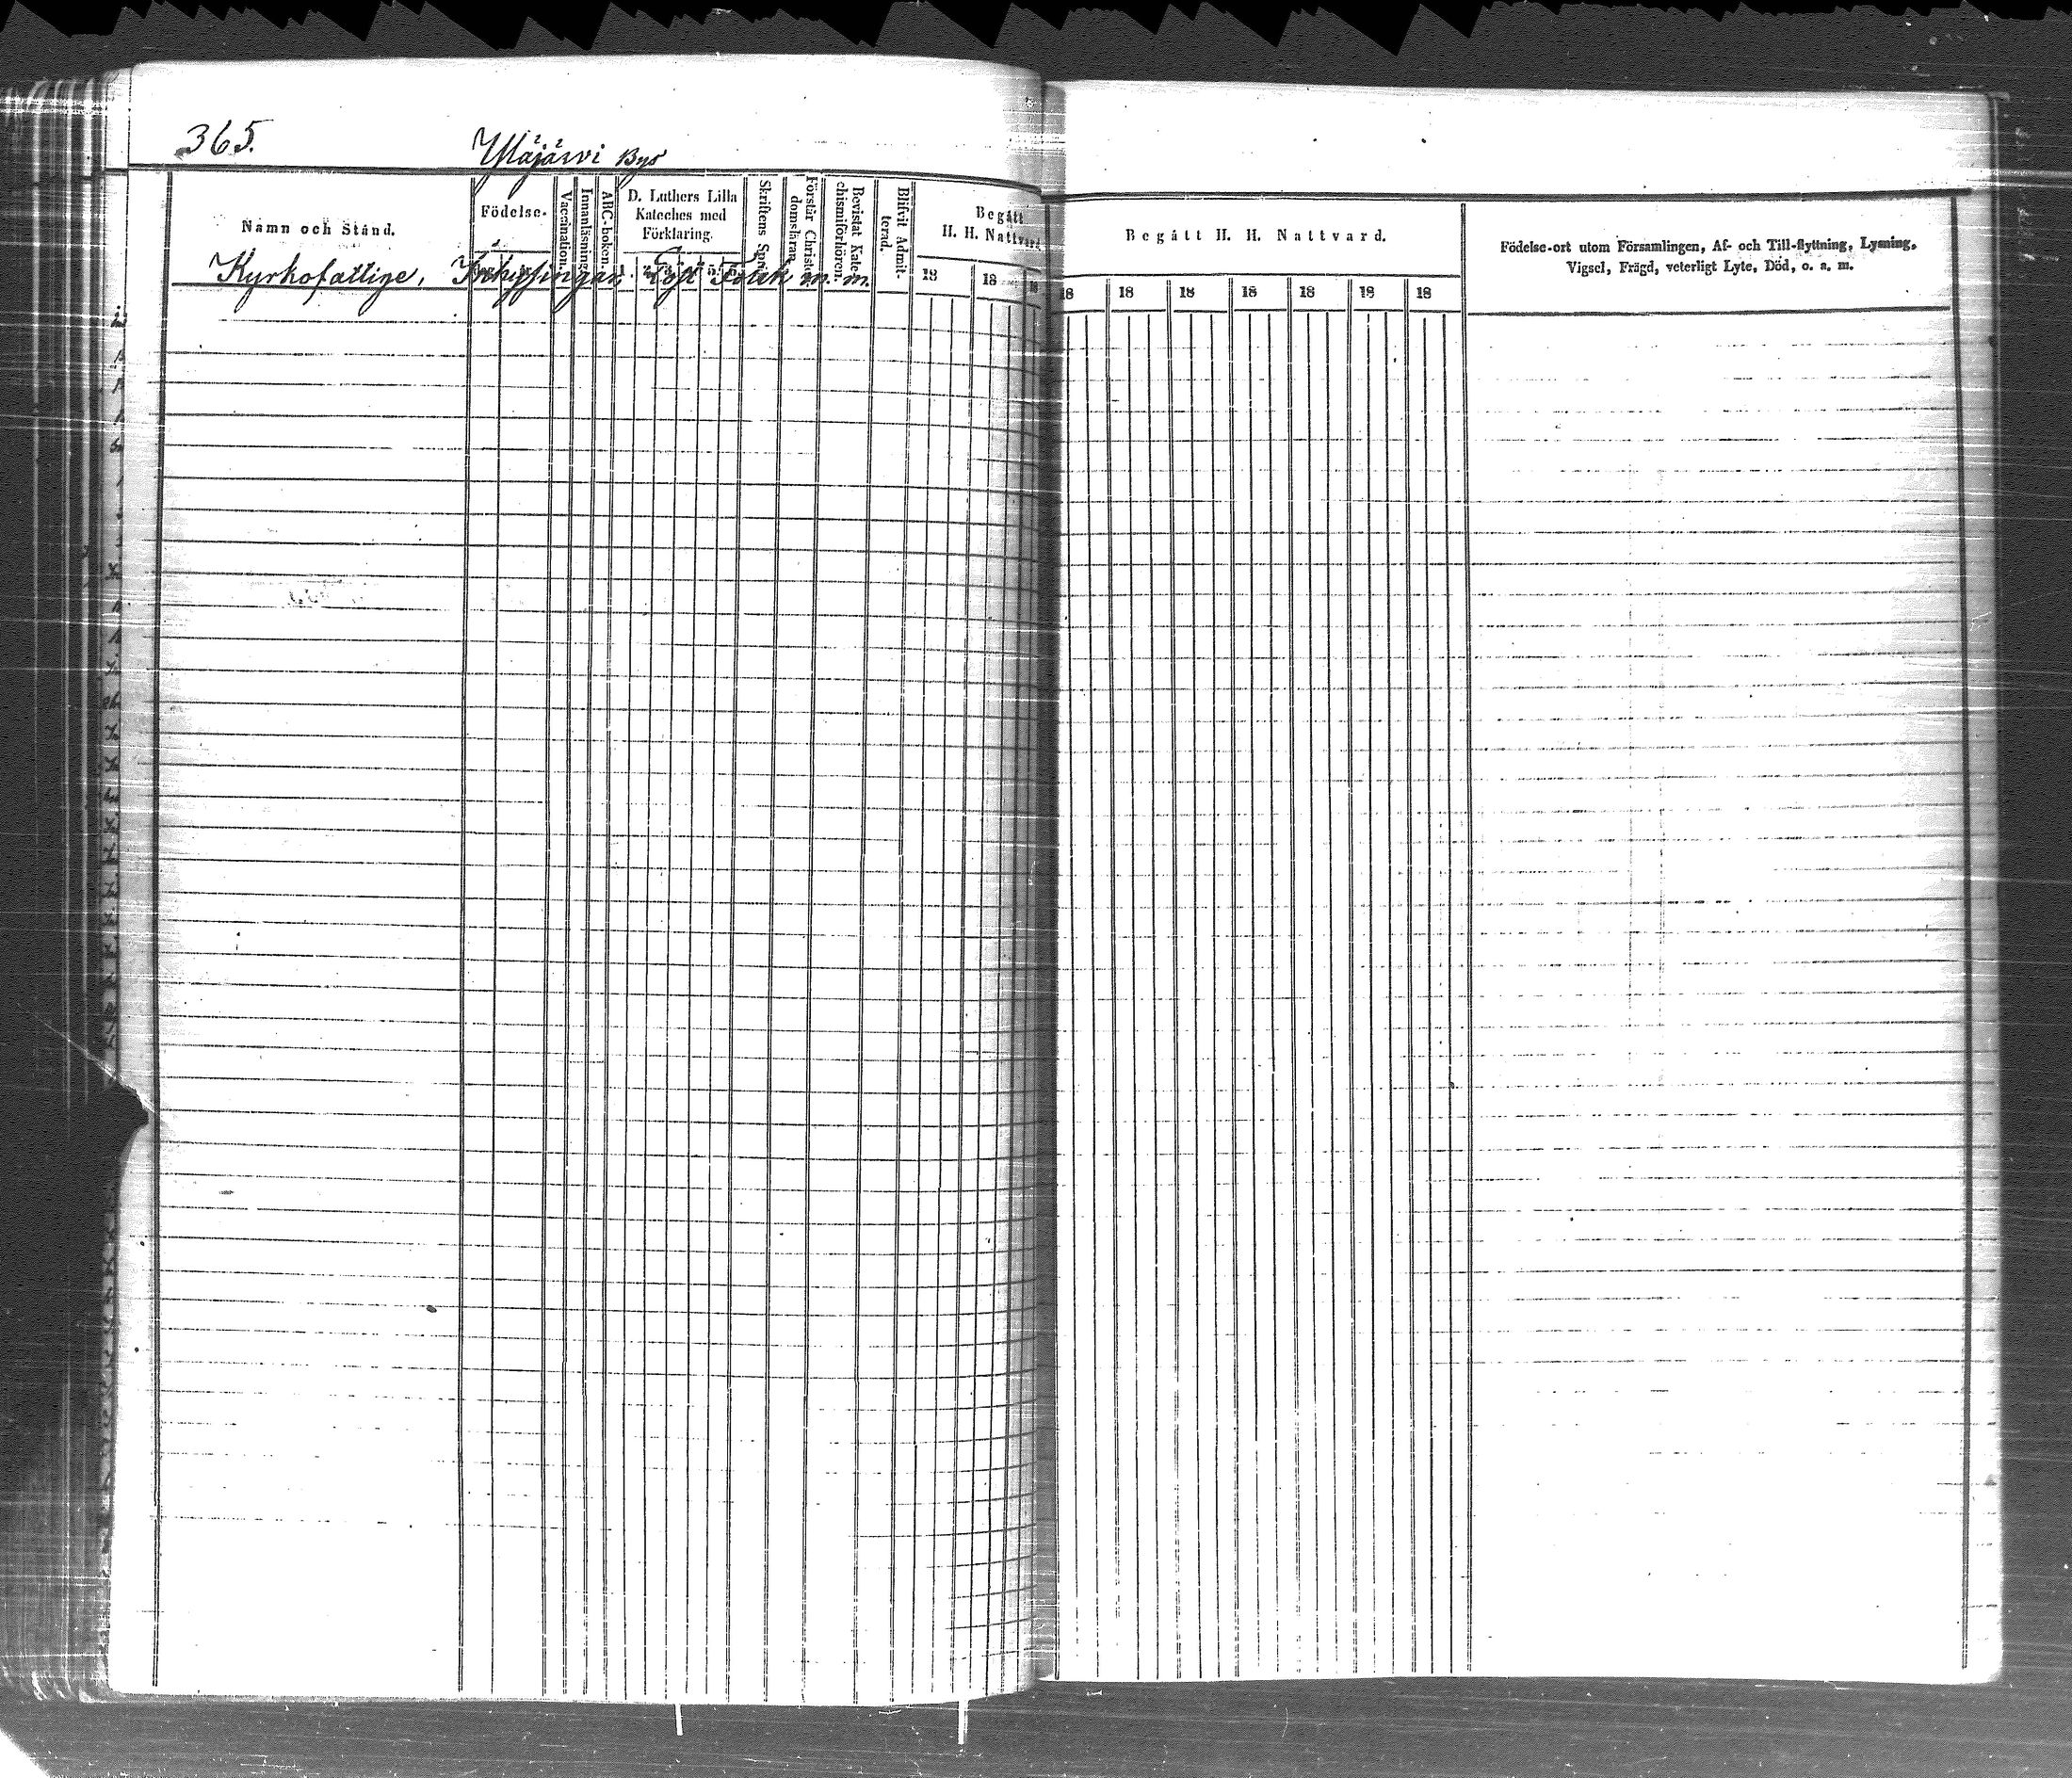 365.
Yläjärvi Bys
Namn och Stånd.
Födelse-
Vaccination.
Innanläsning.
ABC-boken.
D. Luthers Lilla
Kateches med
Förklaring.
Skriftens Språk
Förstår Christen-
domsläran.
Bevistat Kate-
chismiförhören.
Blifvit Admit-
terad.
Begått
H. H. Nattvard
18 18 18
Kyrkofattige, Inhysingar, Löst Folck m. m.
Begått H. H. Nattvard.
18 18 18 18 18 18 18
Födelse-ort utom Församlingen, Af- och Till-flyttning, Lysning,
Vigsel, Frägd, veterligt Lyte, Död, o. s. m.